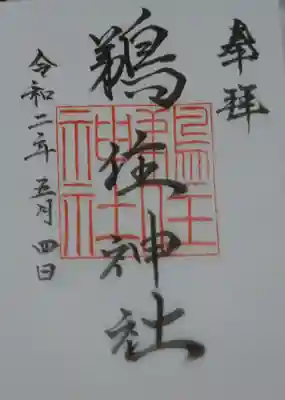 奉拝
鵜住神社
令和二年五月四日
鵜住
神社